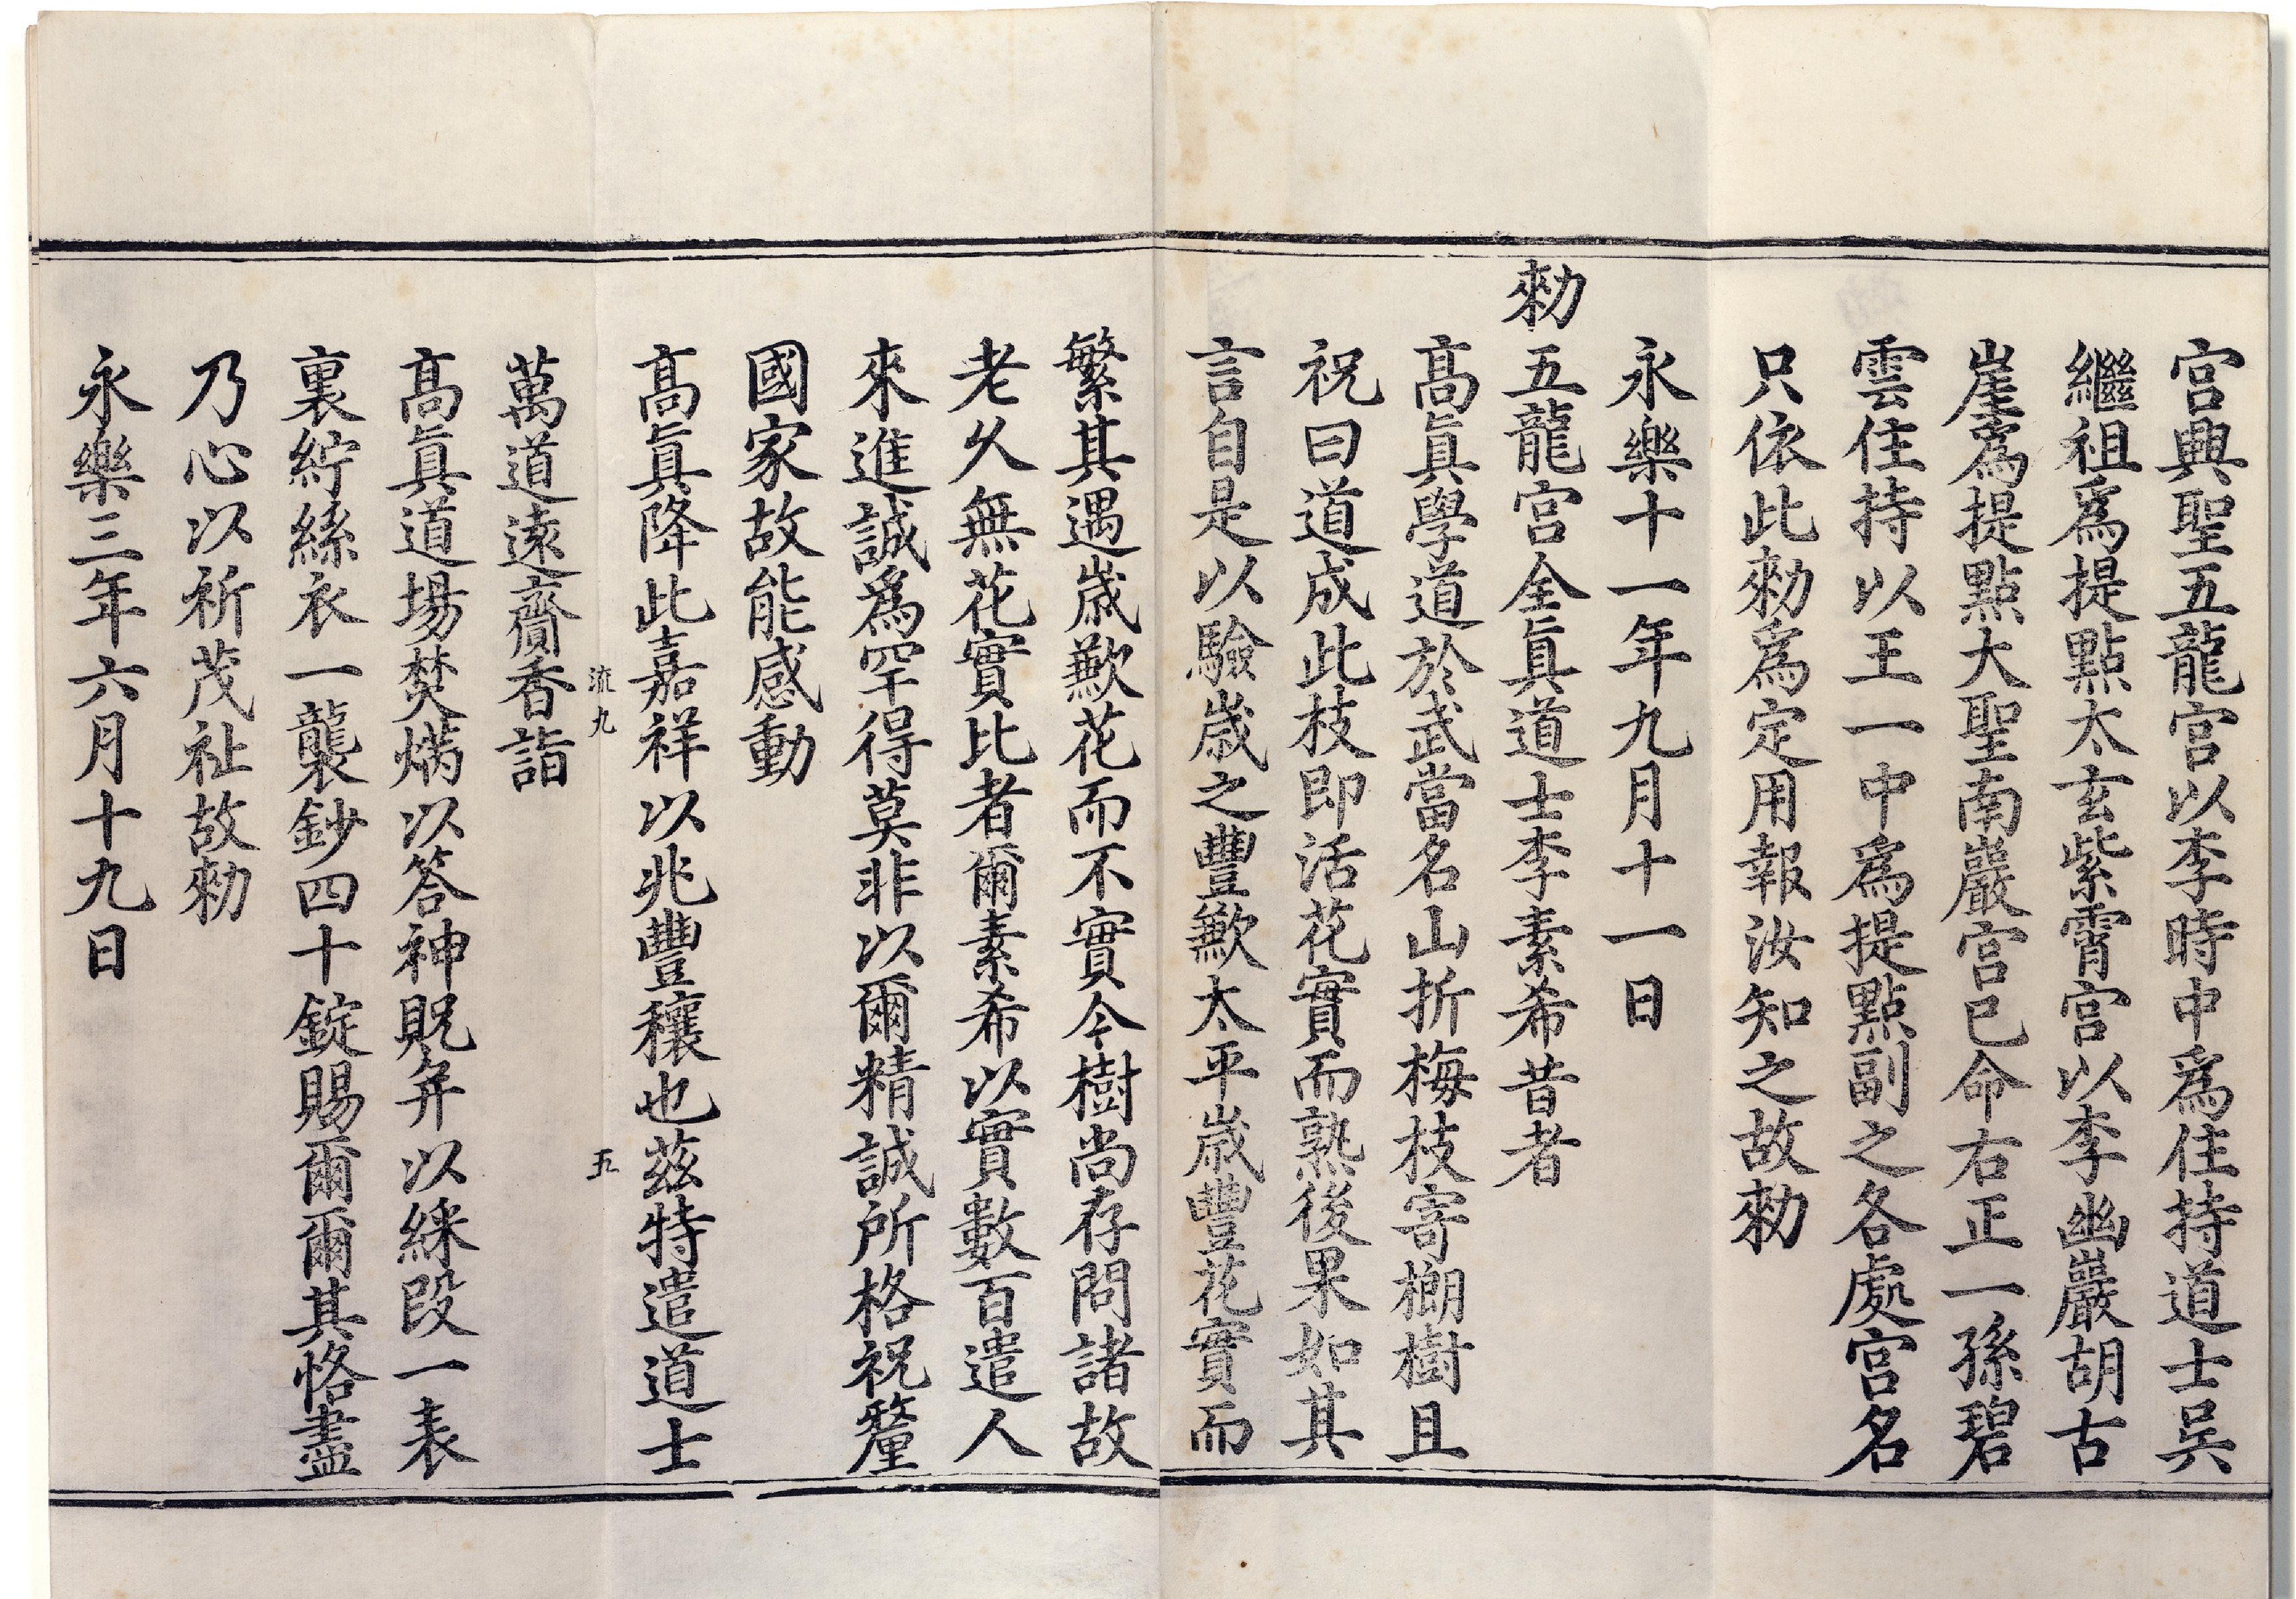 宫興聖五龍宫以李時中爲住持道士吴
繼祖爲提點太玄紫霄宫以李幽巖胡古
崖爲提點大聖南巖宫已命右正一孫碧
雲住持以王一中爲提點副之各處宫名
只依此勑爲定用報汝知之故勑
永樂十一年九月十一日
勑五龍宫全眞道士李素希昔者
髙眞學道於武當名山折梅枝寄榔樹且
祝曰道成此枝即活花實而熟後果如其
言自是以驗歳之豐歉太平歳豐花實而
繁其遇歳歉花而不實今樹尚存問諸故
老久無花實比者爾素希以實數百遣人
來進誠爲罕得莫非以爾精誠所格祝釐
國家故能感動
髙眞降此嘉祥以兆豐穰也茲特遣道士
流九 五
萬道遠齎香詣
髙眞道場焚爇以答神貺并以綵段一表
裏紵絲衣一襲鈔四十錠賜爾爾其恪盡
乃心以祈茂祉故勑
永樂三年六月十九日